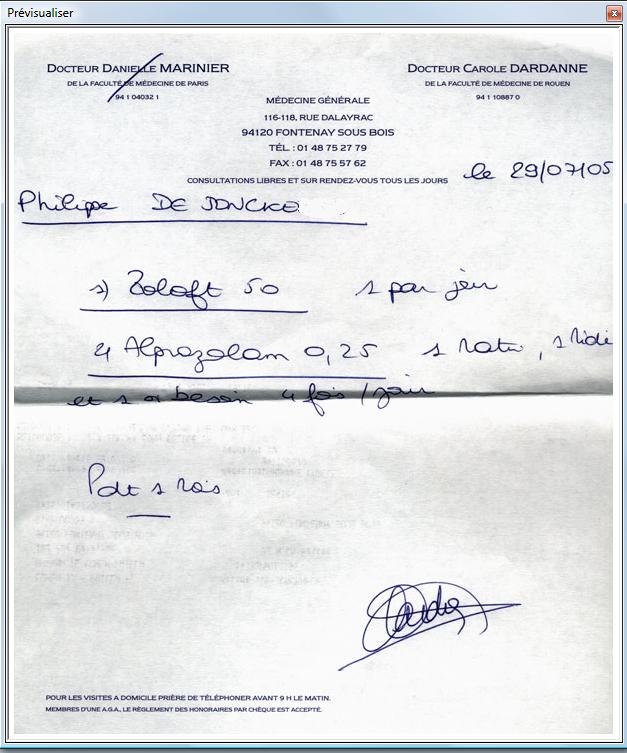 Prévisualiser
DOCTEUR DANIELLE MARINIER
DE LA FACULTÉ DE MÉDECINE DE PARIS
94 1 04032 1
DOCTEUR CAROLE DARDANNE
DE LA FACULTÉ DE MÉDECINE DE ROUEN
94 1 10887 0
MÉDECINE GÉNÉRALE
116-118, RUE DALAYRAC
94120 FONTENAY SOUS BOIS
TÉL. : 01 48 75 27 79
FAX : 01 48 75 57 62
CONSULTATIONS LIBRES ET SUR RENDEZ-VOUS TOUS LES JOURS
le 29/07/05
Philippe DE JONCKE
1) Zoloft 50 1 par jour
2) Alprazolam 0,25 1 matin, 1 midi
et 1 a besoin 4 fois / jour
Pdt 1 mois
POUR LES VISITES A DOMICILE PRIÈRE DE TÉLÉPHONER AVANT 9 H LE MATIN.
MEMBRES D'UNE A.G.A., LE RÈGLEMENT DES HONORAIRES PAR CHÈQUE EST ACCEPTÉ.